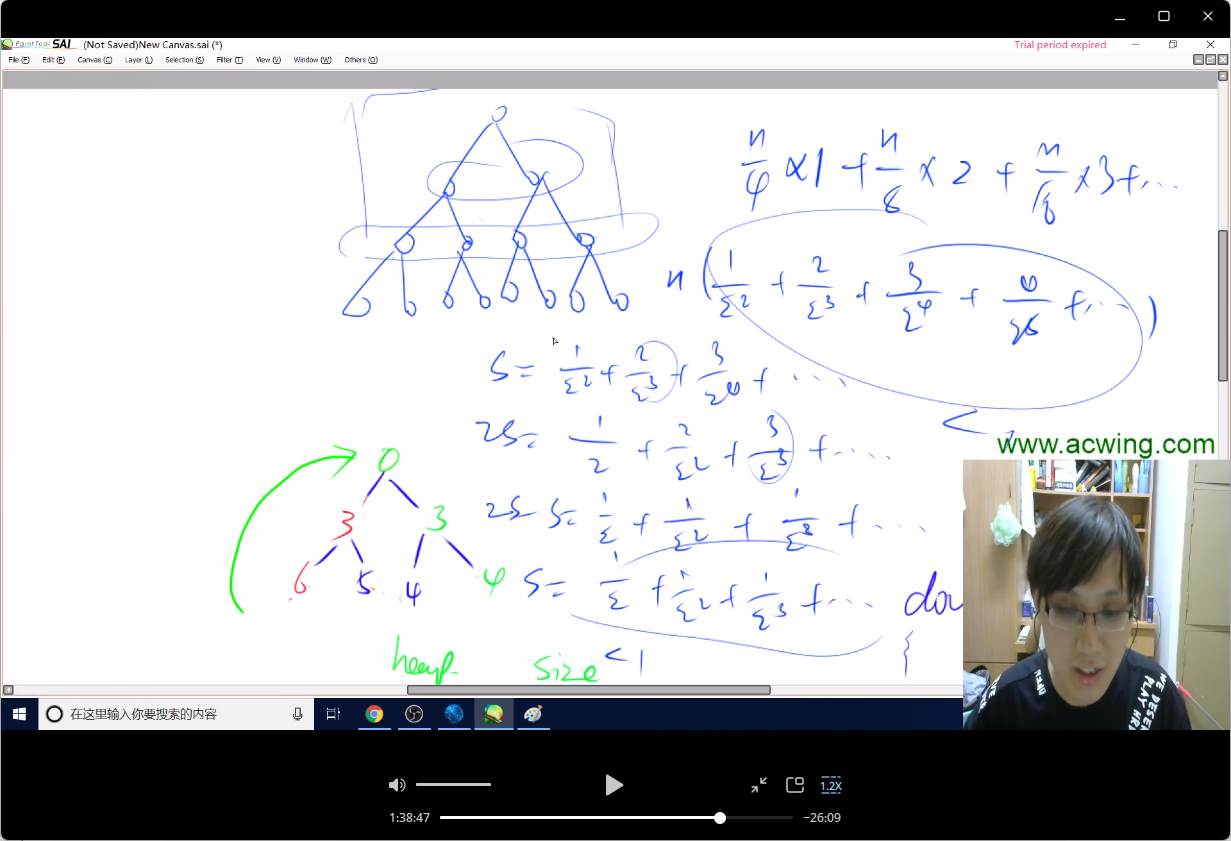 PaintTool SAI (Not Saved)New Canvas.sai (*) Trial period expired
File (F) Edit (E) Canvas (C) Layer (L) Selection (S) Filter (T) View (V) Window (W) Others (O)
n/4 ×1 + n/8 × 2 + n/16 ×3+...
n (1/2² + 2/2³ + 3/2⁴ + 4/2⁵ +...)
S= 1/2² + 2/2³ + 3/2⁴ + ...
2S= 1/2 + 2/2² + 3/2³ + ...
2S-S= 1/2 + 1/2² + 1/2³ + ...
S= 1/2 + 1/2² + 1/2³ + ...
<1
<
www.acwing.com
0
3 3
6 5 4 4
heap size
dow
{
WE DESE
PLAY HAR
在这里输入你要搜索的内容
1.2X
1:38:47 −26:09